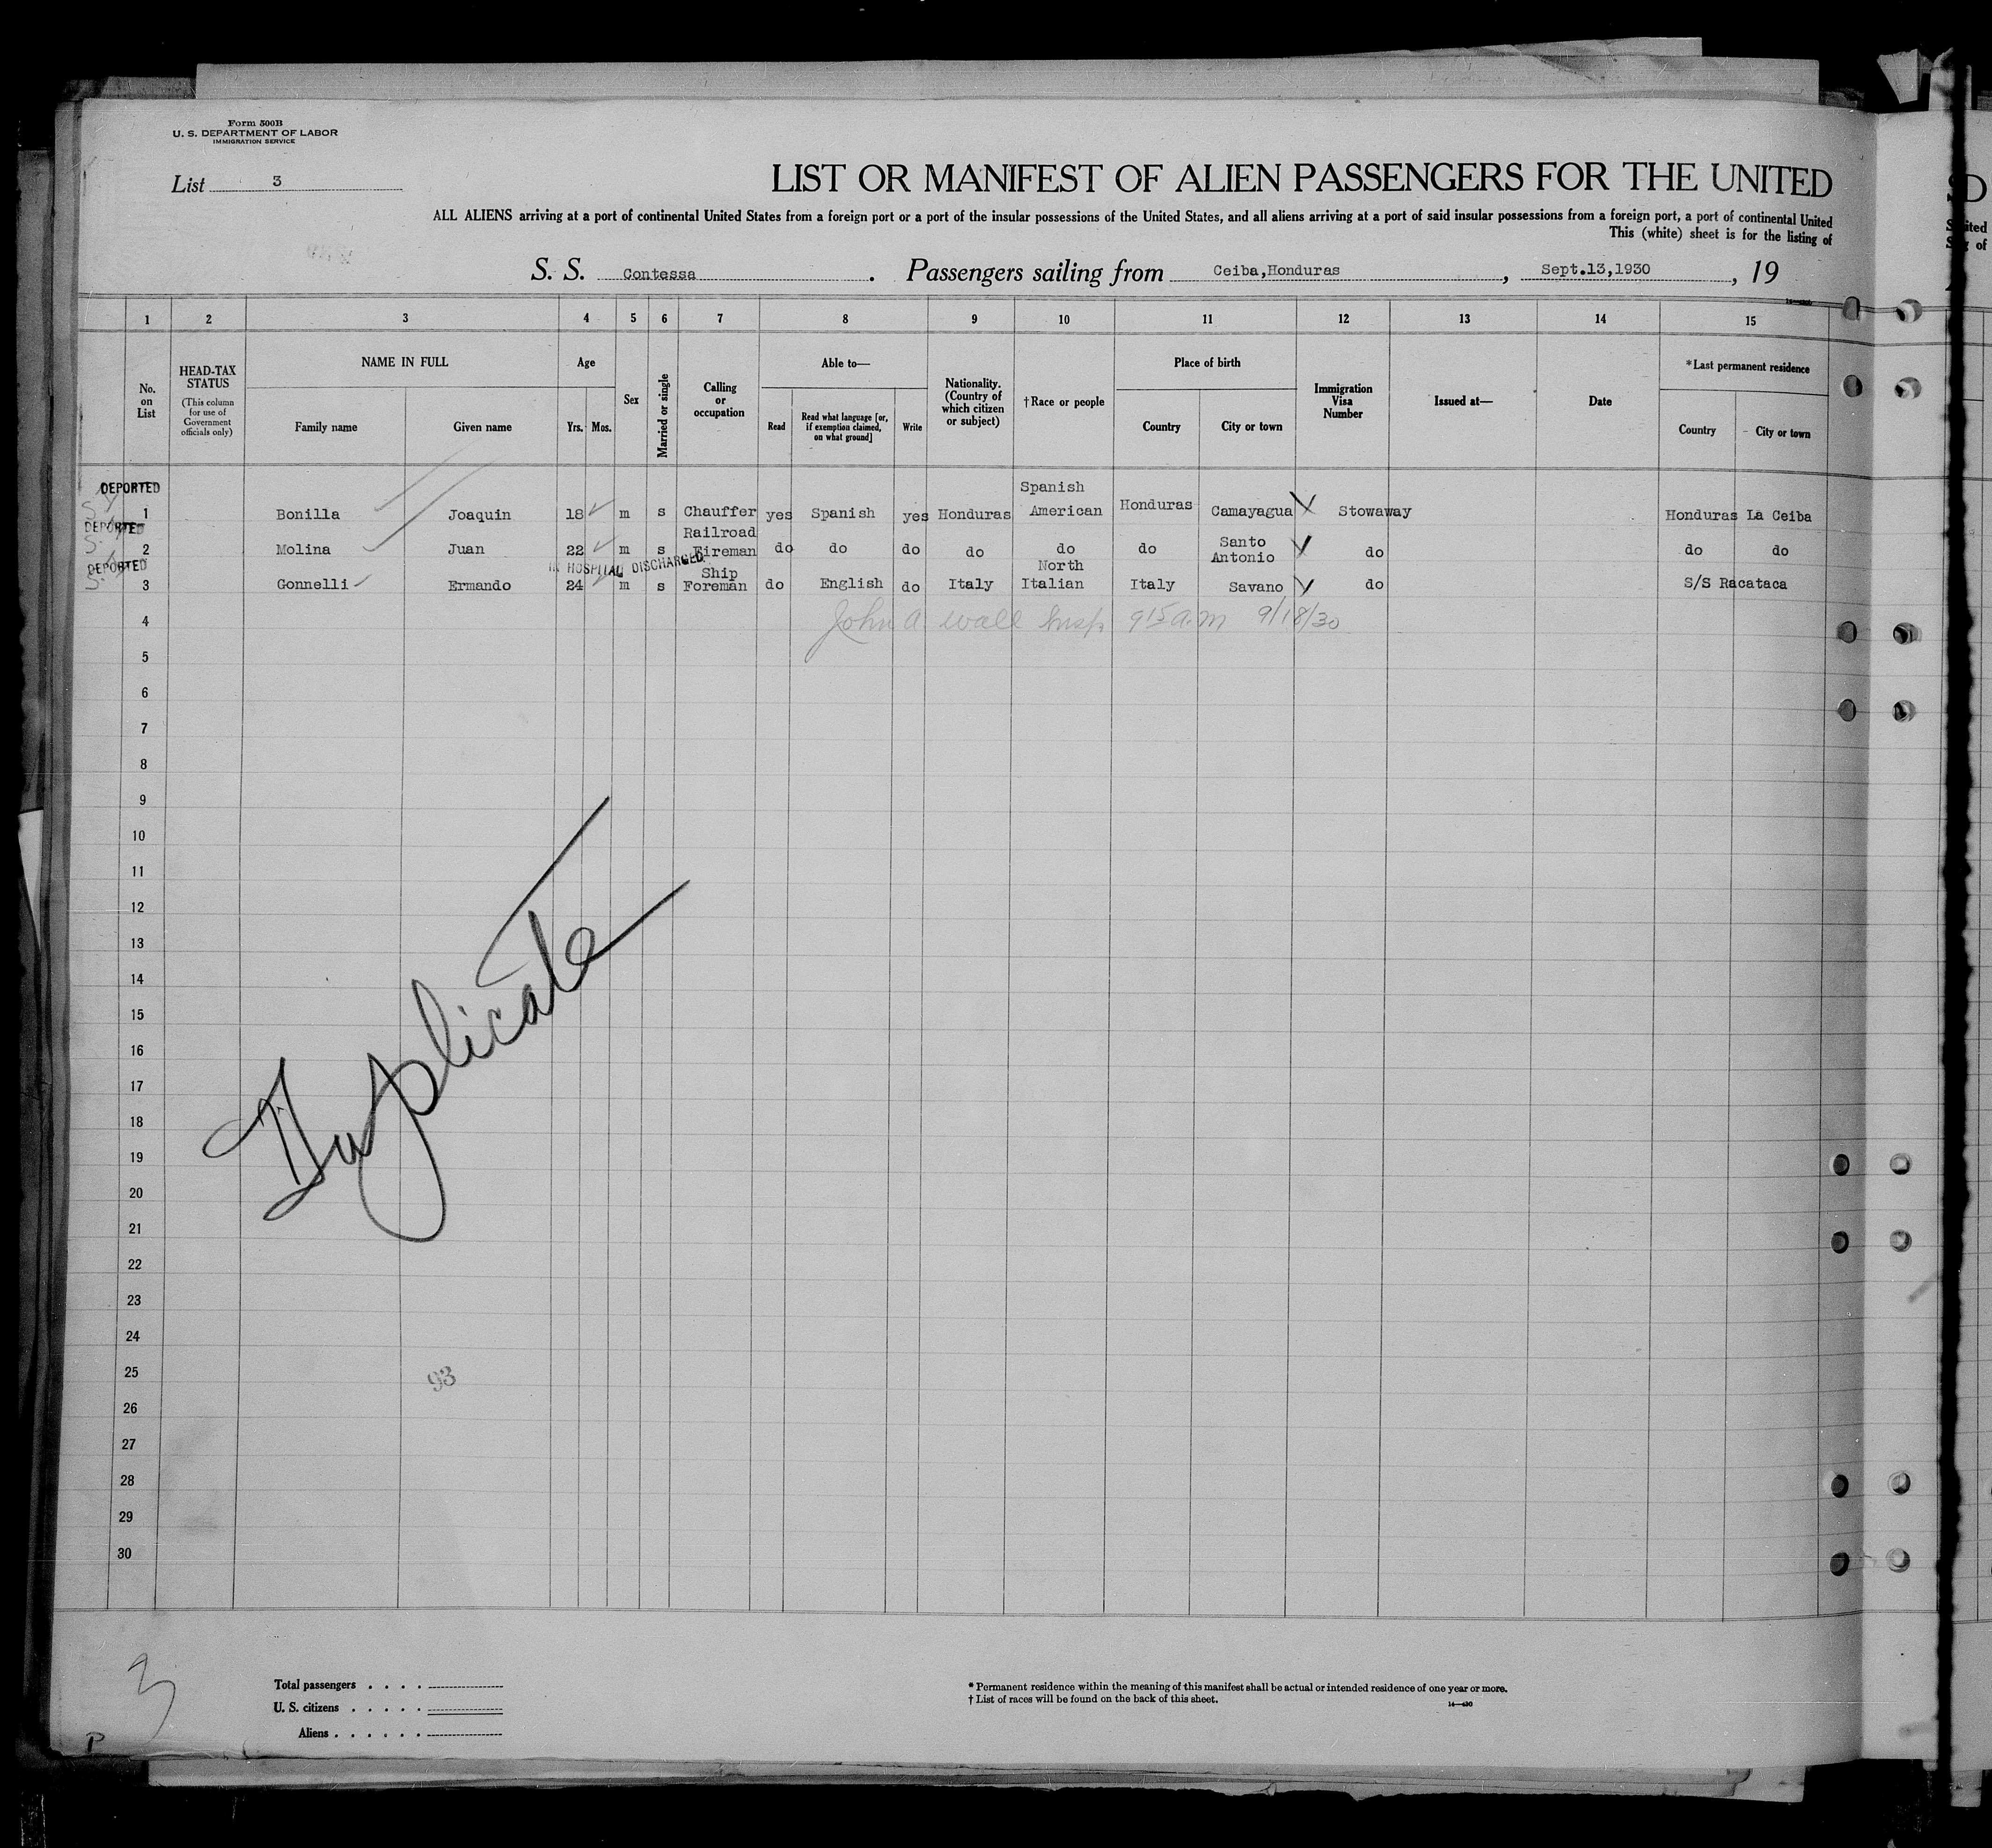 Form 500B
U. S. DEPARTMENT OF LABOR
IMMIGRATION SERVICE
List 3
LIST OR MANIFEST OF ALIEN PASSENGERS FOR THE UNITED
ALL ALIENS arriving at a port of continental United States from a foreign port or a port of the insular possessions of the United States, and all aliens arriving at a port of said insular possessions from a foreign port, a port of continental United
This (white) sheet is for the listing of
S. S. Contessa. Passengers sailing from Ceiba,Honduras, Sept.13,1930, 19
1 2 3 4 5 6 7 8 9 10 11 12 13 14 15
No. on List
HEAD-TAX STATUS
(This column for use of Government officials only)
NAME IN FULL
Family name Given name
Age
Yrs. Mos.
Sex
Married or single
Calling or occupation
Able to—
Read
Read what language [or, if exemption claimed, on what ground]
Write
Nationality. (Country of which citizen or subject)
†Race or people
Place of birth
Country City or town
Immigration Visa Number
Issued at—
Date
*Last permanent residence
Country City or town
DEPORTED
1 Bonilla Joaquin 18 m s Chauffer yes Spanish yes Honduras Spanish American Honduras Camayagua Stowaway Honduras La Ceiba
DEPORTED
2 Molina Juan 22 m s Railroad Fireman do do do do do do Santo Antonio do do do
IN HOSPITAL DISCHARGED
DEPORTED
3 Gonnelli Ermando 24 m s Ship Foreman do English do Italy North Italian Italy Savano do S/S Racataca
4 John A. Wall Insp 915 a.m 9/18/30
5
6
7
8
9
10
11
12
13
14
15
16
17
18
19
20
21
22
23
24
25
26
27
28
29
30
Duplicate
93
3
P
Total passengers . . . .
U. S. citizens . . . . .
Aliens . . . . . .
* Permanent residence within the meaning of this manifest shall be actual or intended residence of one year or more.
† List of races will be found on the back of this sheet.